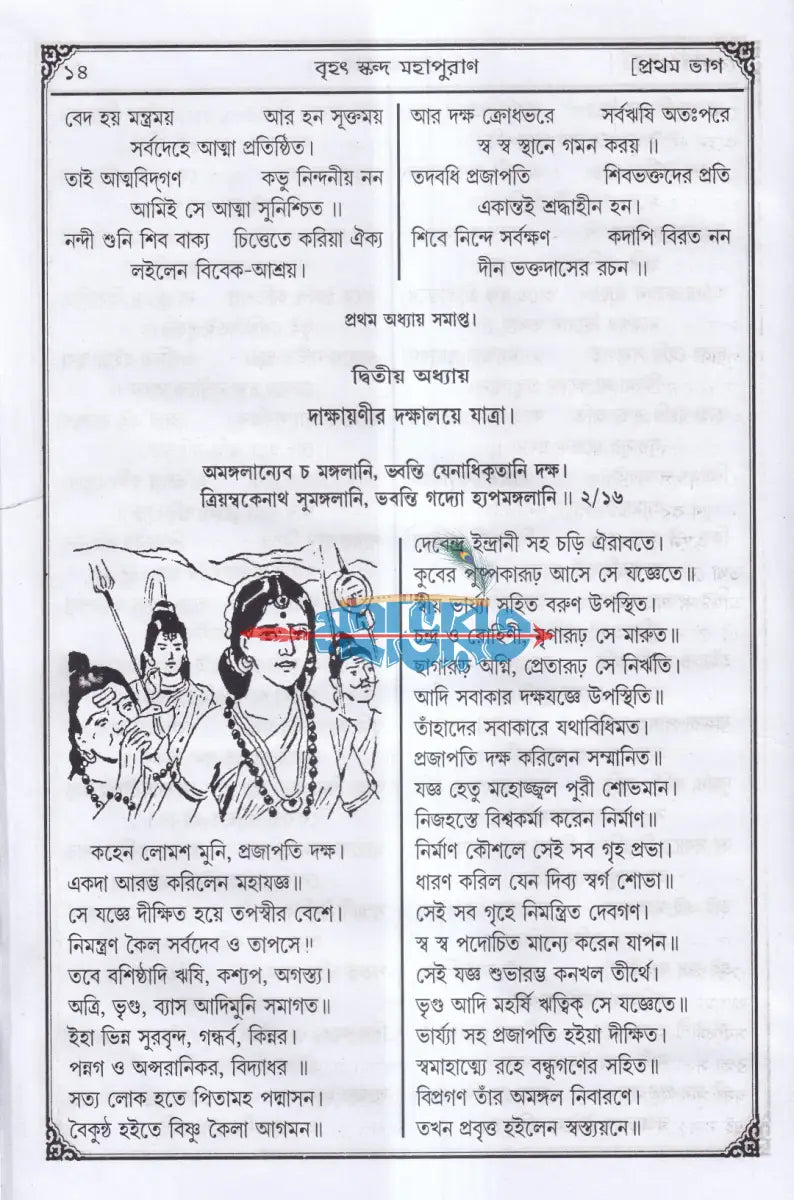 ১৪
বৃহৎ স্কন্দ মহাপুরাণ
[প্রথম ভাগ
বেদ হয় মন্ত্রময় আর হন সূক্তময়
সর্বদেহে আত্মা প্রতিষ্ঠিত।
তাই আত্মবিদ্‌গণ কভু নিন্দনীয় নন
আমিই সে আত্মা সুনিশ্চিত ॥
নন্দী শুনি শিব বাক্য চিত্তেতে করিয়া ঐক্য
লইলেন বিবেক-আশ্রয়।
আর দক্ষ ক্রোধভরে সর্বঋষি অতঃপরে
স্ব স্ব স্থানে গমন করয় ॥
তদবধি প্রজাপতি শিবভক্তদের প্রতি
একান্তই শ্রদ্ধাহীন হন।
শিবে নিন্দে সর্বক্ষণ কদাপি বিরত নন
দীন ভক্তদাসের রচন ॥
প্রথম অধ্যায় সমাপ্ত।
দ্বিতীয় অধ্যায়
দাক্ষায়ণীর দক্ষালয়ে যাত্রা।
অমঙ্গলান্যেব চ মঙ্গলানি, ভবন্তি যেনাধিকৃতানি দক্ষ।
ত্রিয়ম্বকেনাথ সুমঙ্গলানি, ভবন্তি গদ্যো হ্যপমঙ্গলানি ॥ ২/১৬
কহেন লোমশ মুনি, প্রজাপতি দক্ষ।
একদা আরম্ভ করিলেন মহাযজ্ঞ॥
সে যজ্ঞে দীক্ষিত হয়ে তপস্বীর বেশে।
নিমন্ত্রণ কৈল সর্বদেব ও তাপসে॥
তবে বশিষ্ঠাদি ঋষি, কশ্যপ, অগস্ত্য।
অত্রি, ভৃগু, ব্যাস আদিমুনি সমাগত॥
ইহা ভিন্ন সুরবৃন্দ, গন্ধর্ব, কিন্নর।
পন্নগ ও অপ্সরানিকর, বিদ্যাধর ॥
সত্য লোক হতে পিতামহ পদ্মাসন।
বৈকুণ্ঠ হইতে বিষ্ণু কৈলা আগমন॥
দেবেন্দ্র ইন্দ্রানী সহ চড়ি ঐরাবতে।
কুবের পুষ্পকারূঢ় আসে সে যজ্ঞেতে॥
স্বীয় ভার্য্যা সহিত বরুণ উপস্থিত।
চন্দ্র ও রোহিণী মৃগারূঢ় সে মারুত॥
ছাগারূঢ় অগ্নি, প্রেতারূঢ় সে নির্ঋতি।
আদি সবাকার দক্ষযজ্ঞে উপস্থিতি॥
তাঁহাদের সবাকারে যথাবিধিমত।
প্রজাপতি দক্ষ করিলেন সম্মানিত॥
যজ্ঞ হেতু মহোজ্জ্বল পুরী শোভমান।
নিজহস্তে বিশ্বকর্মা করেন নির্মাণ॥
নির্মাণ কৌশলে সেই সব গৃহ প্রভা।
ধারণ করিল যেন দিব্য স্বর্গ শোভা॥
সেই সব গৃহে নিমন্ত্রিত দেবগণ।
স্ব স্ব পদোচিত মান্যে করেন যাপন॥
সেই যজ্ঞ শুভারম্ভ কনখল তীর্থে।
ভৃগু আদি মহর্ষি ঋত্বিক্ সে যজ্ঞেতে॥
ভার্য্যা সহ প্রজাপতি হইয়া দীক্ষিত।
স্বমাহাত্ম্যে রহে বন্ধুগণের সহিত॥
বিপ্রগণ তাঁর অমঙ্গল নিবারণে।
তখন প্রবৃত্ত হইলেন স্বস্ত্যয়নে॥